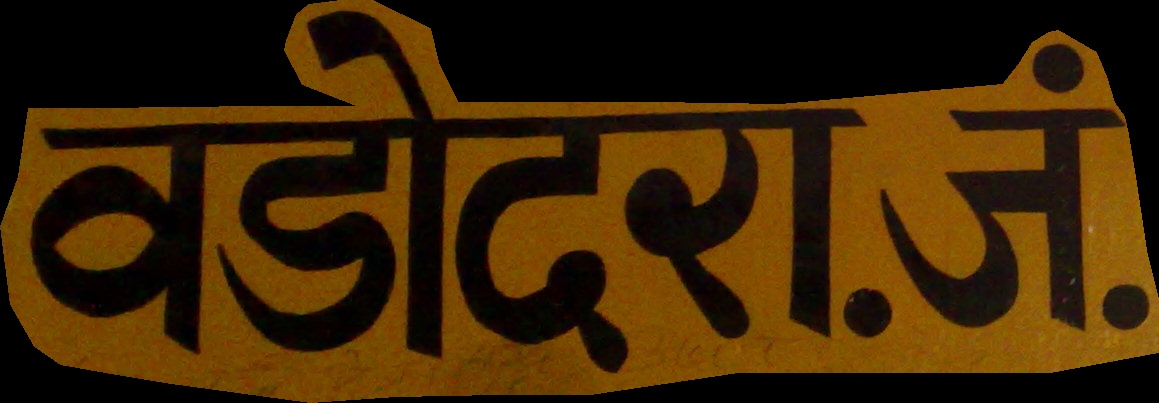 वडोदरा.जं.